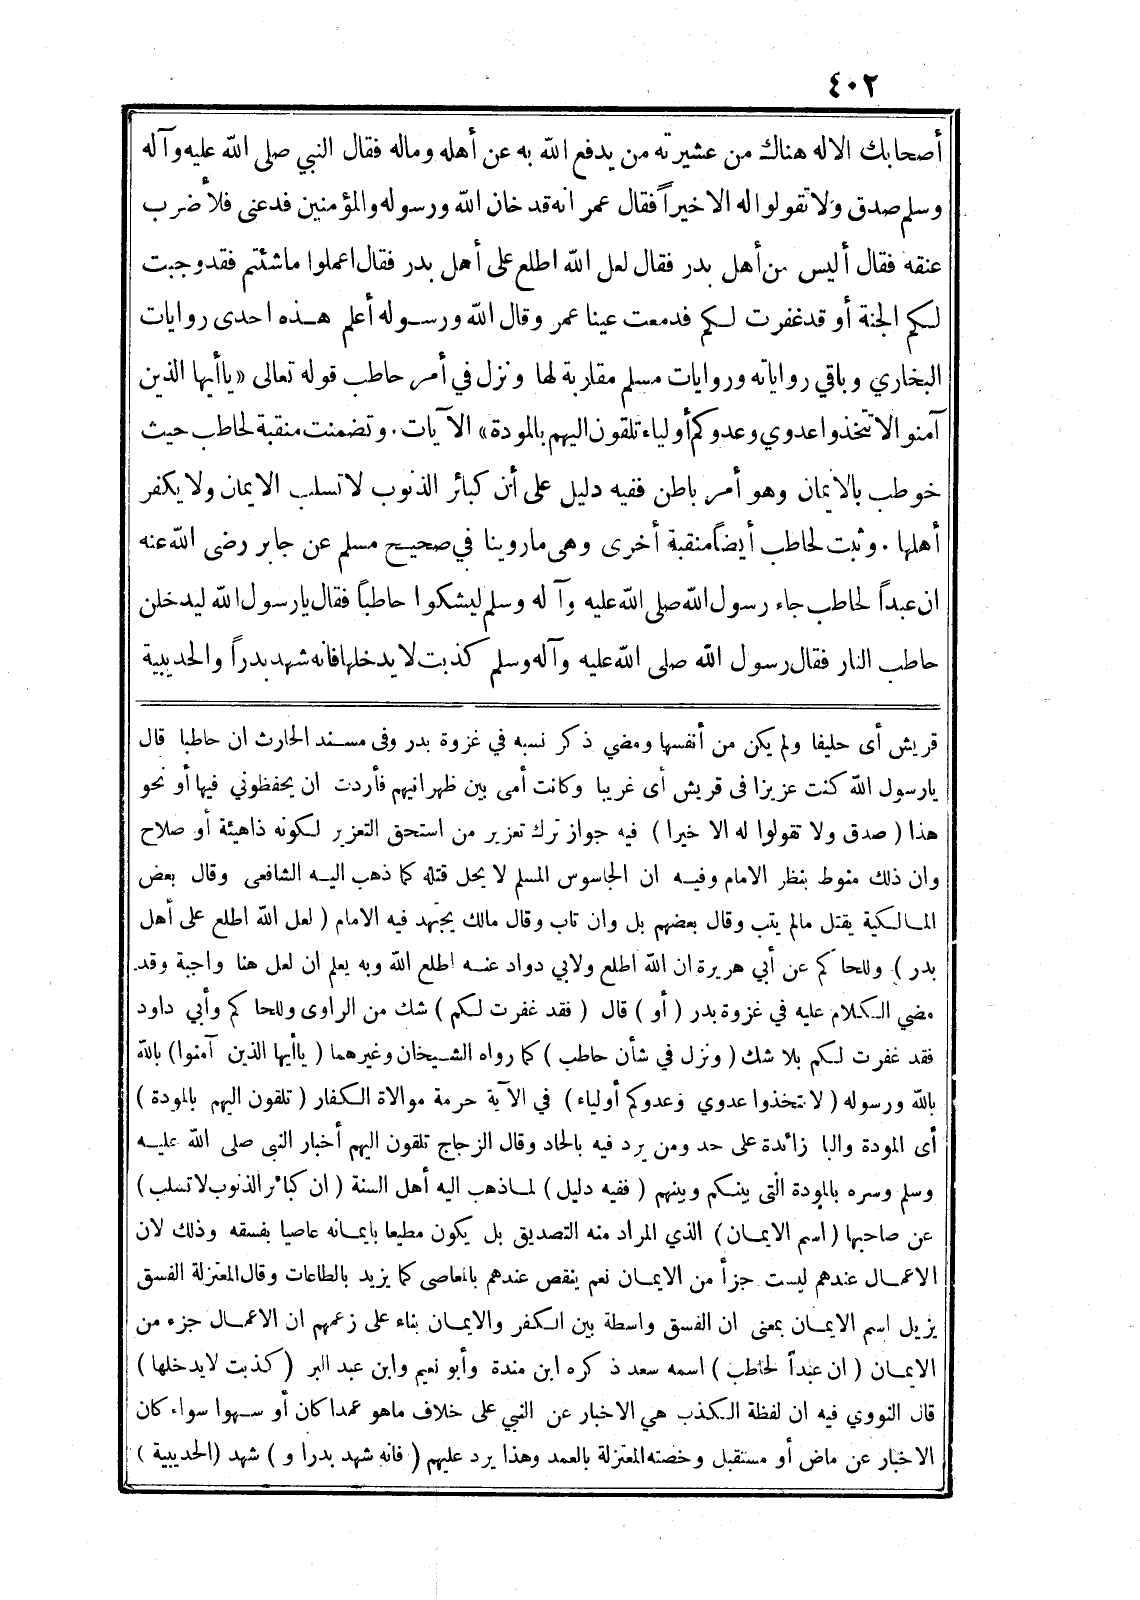 ٤٠٢
أصحابك الا له هناك من عشيرته من يدفع الله به عن أهله وماله فقال النبي صلى الله عليه وآله
وسلم صدق ولا تقولوا له الا خيراً فقال عمر انه قد خان الله ورسوله والمؤمنين فدعنى فلأضرب
عنقه فقال أليس من أهل بدر فقال لعل الله اطلع على أهل بدر فقال اعملوا ماشئتم فقد وجبت
لكم الجنة أو قد غفرت لكم فدمعت عينا عمر وقال الله ورسوله أعلم هذه احدى روايات
البخاري وباقي رواياته وروايات مسلم مقاربة لها ونزل في أمر حاطب قوله تعالى «ياأيها الذين
آمنوا لا تتخذوا عدوي وعدوكم أولياء تلقون اليهم بالمودة» الآيات. وتضمنت منقبة لحاطب حيث
خوطب بالايمان وهو أمر باطن ففيه دليل على أن كبائر الذنوب لا تسلب الايمان ولا يكفر
أهلها. وثبت لحاطب أيضاً منقبة أخرى وهى ماروينا في صحيح مسلم عن جابر رضى الله عنه
ان عبداً لحاطب جاء رسول الله صلى الله عليه وآله وسلم ليشكوا حاطباً فقال يارسول الله ليدخلن
حاطب النار فقال رسول الله صلى الله عليه وآله وسلم كذبت لا يدخلها فانه شهد بدراً والحديبية
قريش أى حليفا ولم يكن من أنفسها ومضي ذكر نسبه في غزوة بدر وفى مسند الحارث ان حاطبا قال
يارسول الله كنت عزيزا فى قريش أى غريبا وكانت أمى بين ظهرانيهم فأردت ان يحفظوني فيها أو نحو
هذا ( صدق ولا تقولوا له الا خيرا ) فيه جواز ترك تعزير من استحق التعزير لكونه ذاهيئة أو صلاح
وان ذلك منوط بنظر الامام وفيه ان الجاسوس المسلم لا يحل قتله كما ذهب اليه الشافعى وقال بعض
المالكية يقتل مالم يتب وقال بعضهم بل وان تاب وقال مالك يجتهد فيه الامام ( لعل الله اطلع على أهل
بدر ) وللحاكم عن أبي هريرة ان الله اطلع ولابي دواد عنه اطلع الله وبه يعلم ان لعل هنا واجبة وقد
مضي الكلام عليه في غزوة بدر ( أو ) قال ( فقد غفرت لكم ) شك من الراوى وللحاكم وأبي داود
فقد غفرت لكم بلا شك ( ونزل في شأن حاطب ) كما رواه الشيخان وغيرهما ( ياأيها الذين آمنوا ) بالله
بالله ورسوله ( لا تتخذوا عدوي وعدوكم أولياء ) في الآية حرمة موالاة الكفار ( تلقون اليهم بالمودة )
أى المودة والبا زائدة على حد ومن يرد فيه بالحاد وقال الزجاج تلقون اليهم أخبار النبى صلى الله عليه
وسلم وسره بالمودة التى بينكم وبينهم ( ففيه دليل ) لماذهب اليه أهل السنة ( ان كبائر الذنوب لا تسلب )
عن صاحبها ( اسم الايمان ) الذي المراد منه التصديق بل يكون مطيعا بايمانه عاصيا بفسقه وذلك لان
الاعمال عندهم ليست جزأ من الايمان نعم ينقص عندهم بالمعاصى كما يزيد بالطاعات وقال المعتزلة الفسق
يزيل اسم الايمان بمعنى ان الفسق واسطة بين الكفر والايمان بناء على زعمهم ان الاعمال جزء من
الايمان ( ان عبداً لحاطب ) اسمه سعد ذكره ابن مندة وأبو نعيم وابن عبد البر ( كذبت لايدخلها )
قال النووي فيه ان لفظة الكذب هي الاخبار عن الني على خلاف ماهو عمدا كان أو سهوا سواء كان
الاخبار عن ماض أو مستقبل وخصته المعتزلة بالعمد وهذا يرد عليهم ( فانه شهد بدرا و ) شهد ( الحديبية )